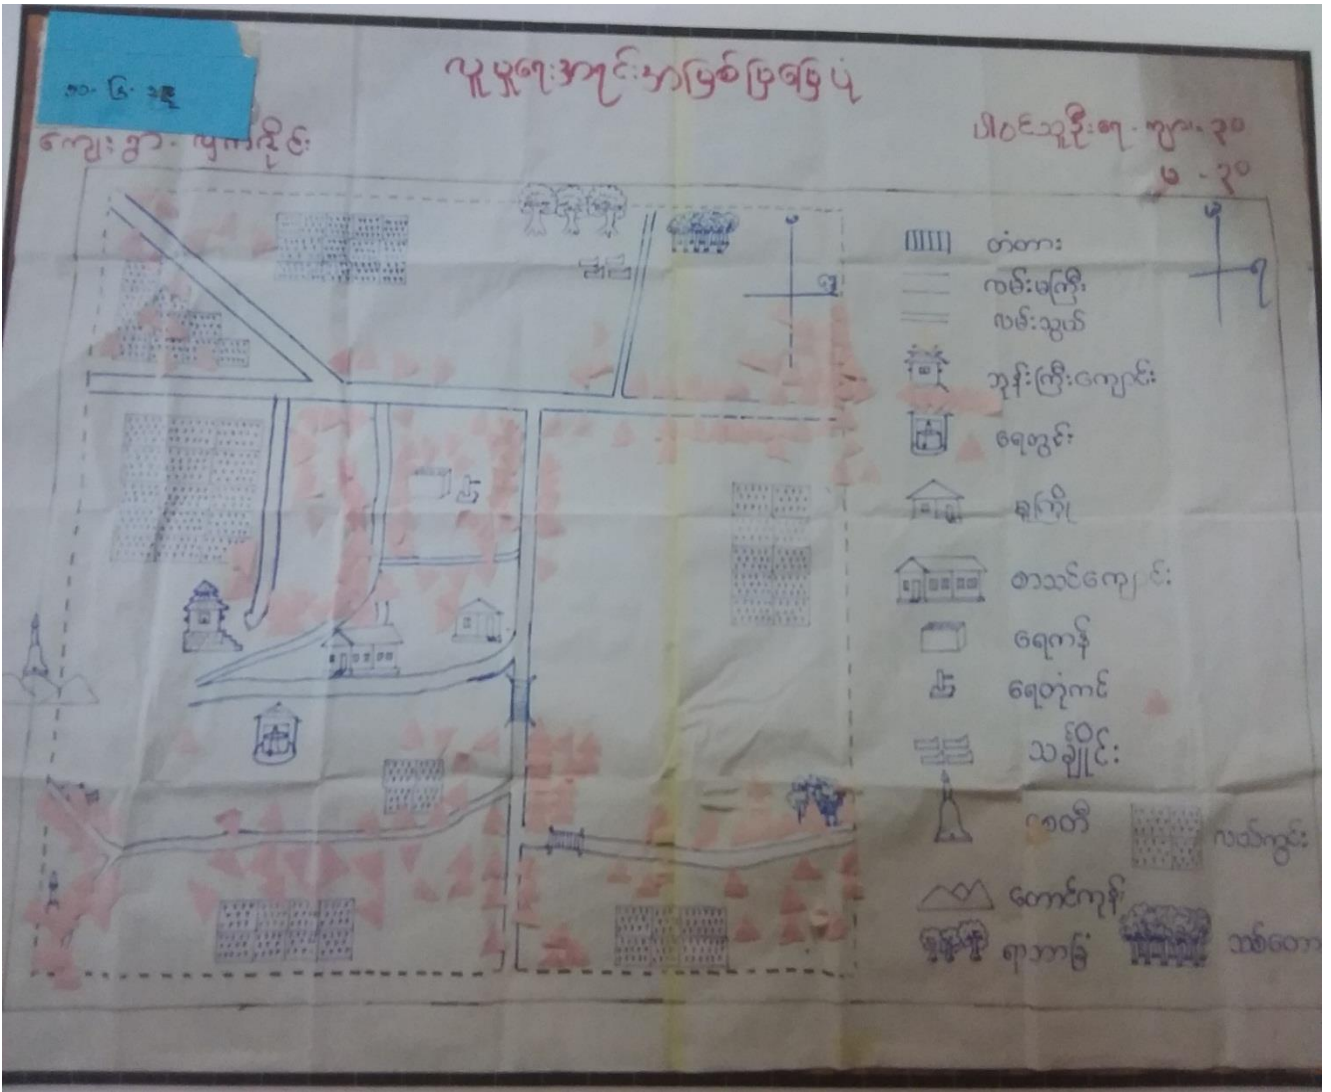 လူမှုရေးအရင်းအမြစ်ပြမြေပုံ
ကျေးရွာ-
ပါဝင်သူဦးရေ - ကျား - ၃၀
မ - ၃၀
မ
ရ
တံတား
လမ်းမကြီး
လမ်းသွယ်
ဘုန်းကြီးကျောင်း
ရေတွင်း
မူကြို
စာသင်ကျောင်း
ရေကန်
ရေတုံကင်
သင်္ချိုင်း
စေတီ
လယ်ကွင်း
တောင်ကုန်း
ရာဘာခြံ
သစ်တော